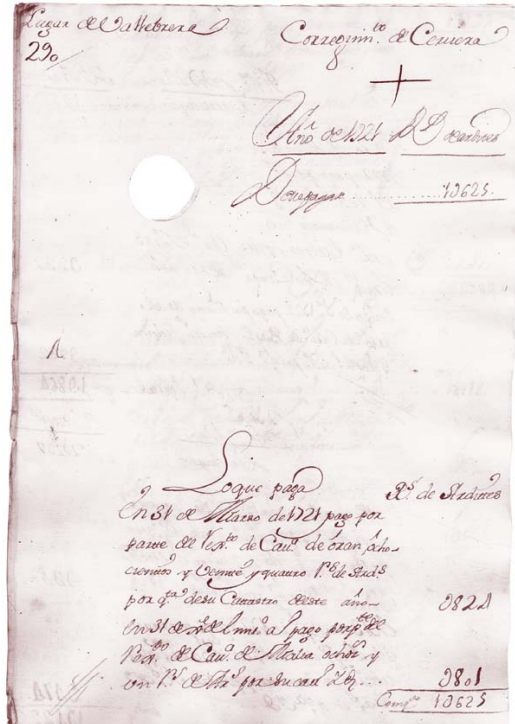 Lugar de Vallebrera
Corregim.to de Cervera
290
Año de 1721 R.s de ardites
Deve pagar ........ 1625.
Lo que paga
R.s de Ardites
En 31 de Marzo de 1721 pago por
parte del Rex.to de Cav.a de oran, ocho-
cientos y Veinte y quatro r.s de Ard.s
por q.ta de su Catastro deste año 824
en 31 de pago por p.te del
Rex.to de Cav.a de ocho y
un r.s de Ar.s por su 801
1625